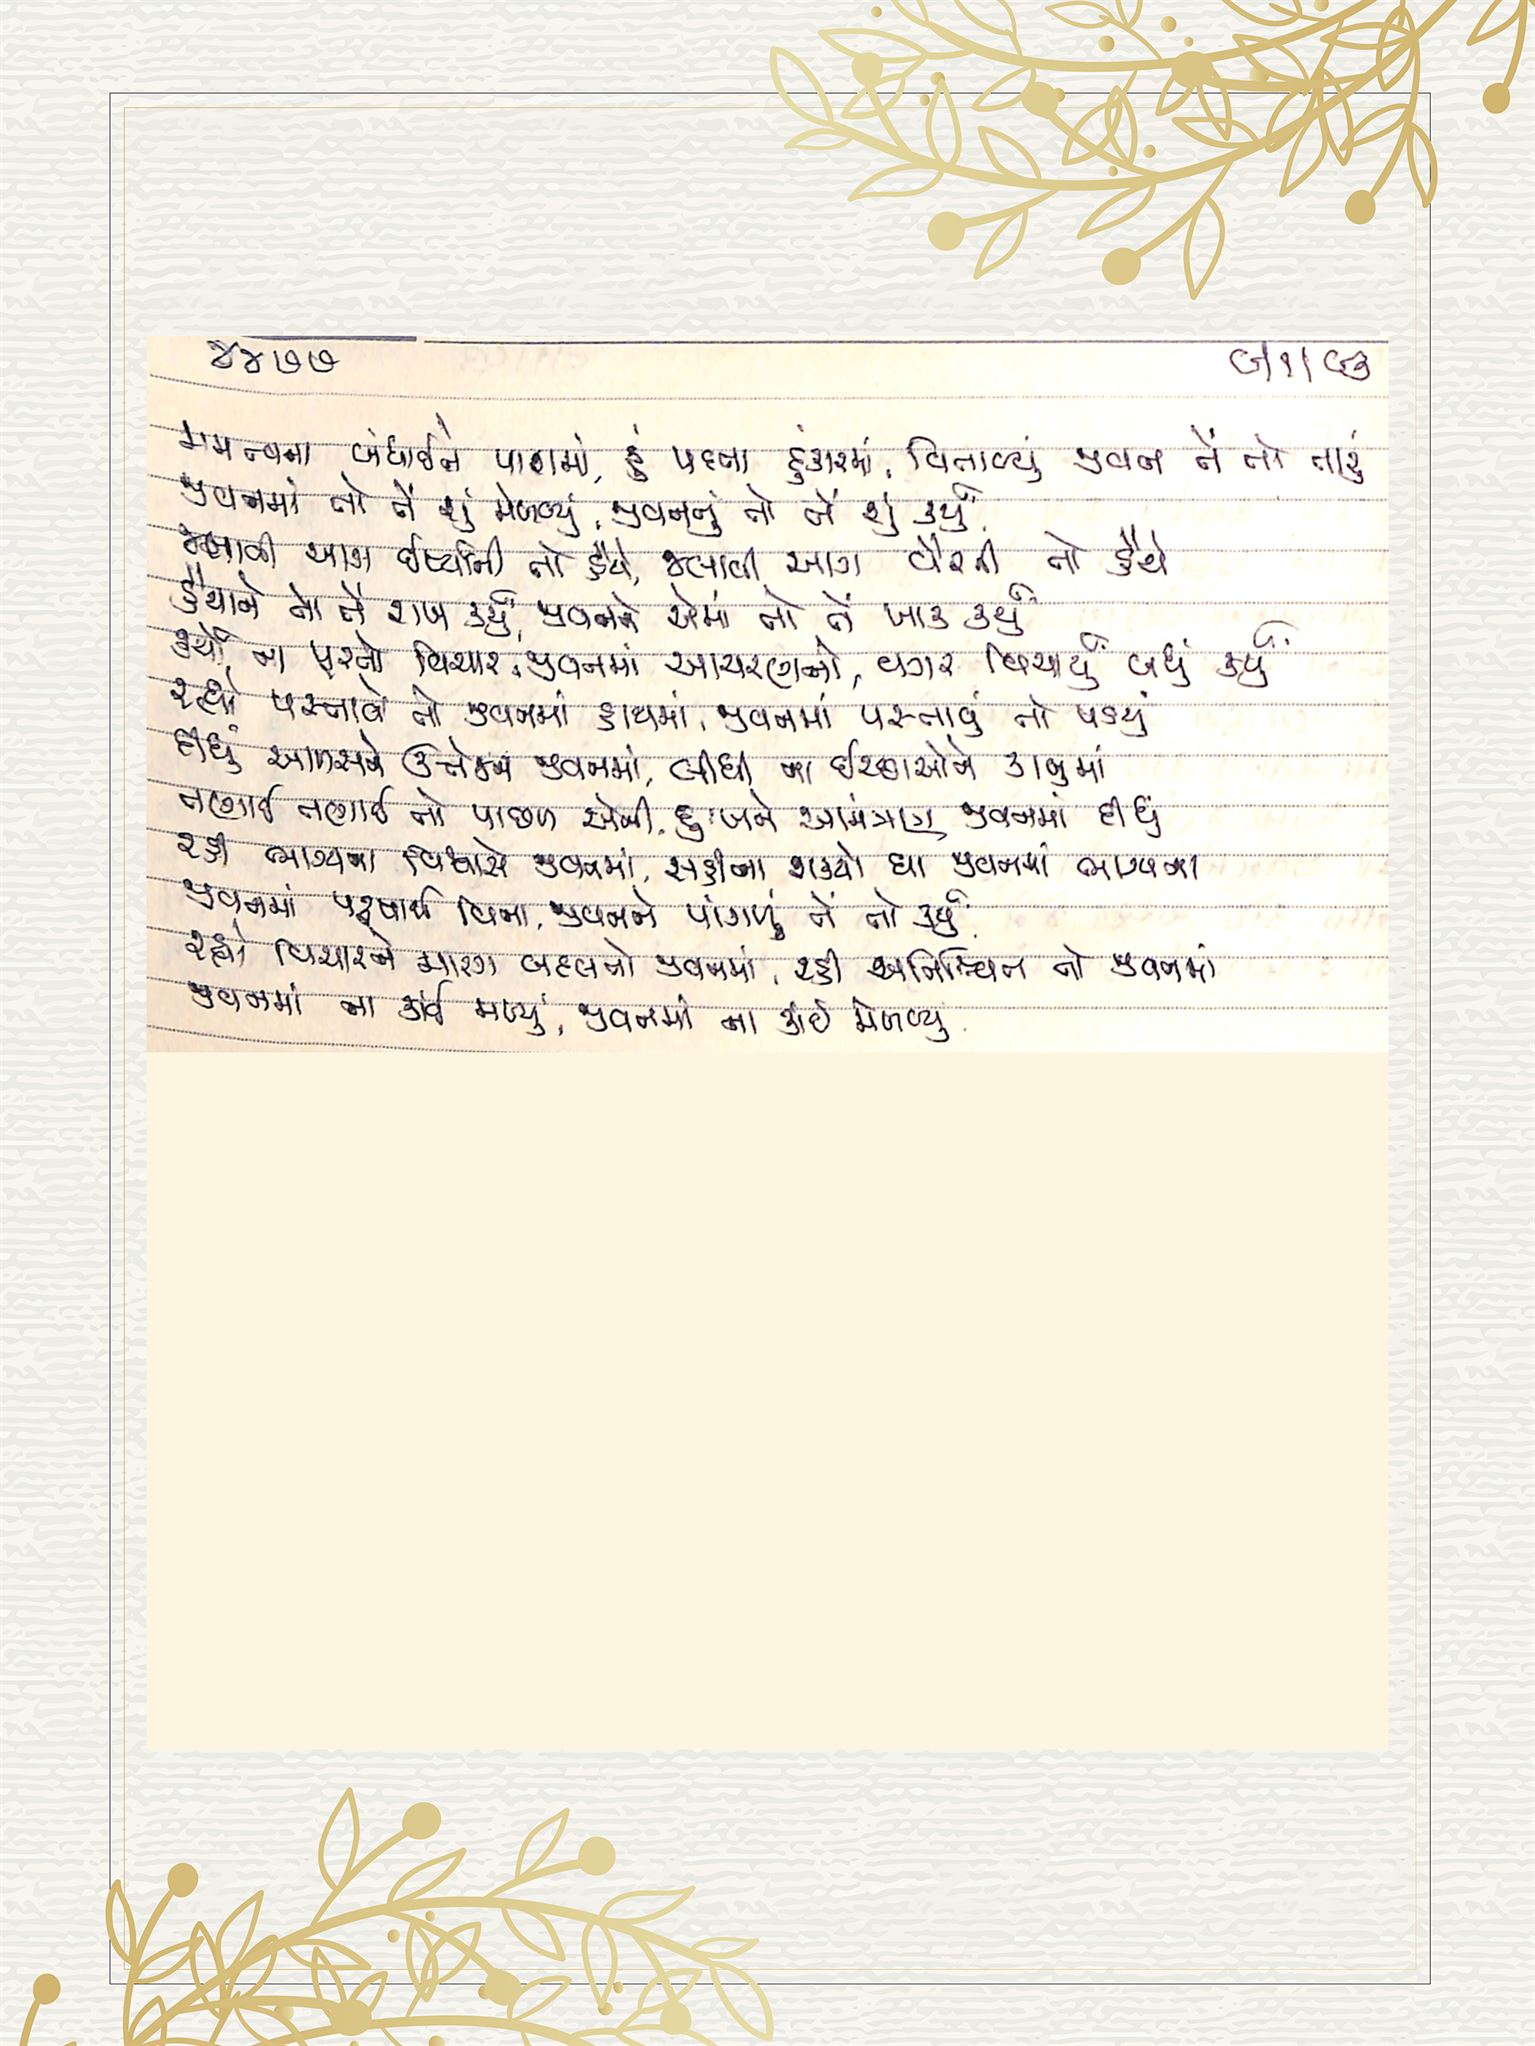 ૪૪૭૭
મમત્વના બંધાઈને પાશમાં, હું પદના હુંકારમાં, વિતાવ્યું જીવન તેં તો તારું
જીવનમાં તો તેં શું મેળવ્યું, જીવનનું તો તેં શું કર્યું
જલાવી આગ ઈર્ષ્યાની તો હૈયે, જલાવી આગ વૈરની તો હૈયે
હૈયાને તો તેં રાખ કર્યું, જીવનને એમાં તો તેં ખાક કર્યું
કર્યો ના પૂરતો વિચાર, જીવનમાં આચરણનો, વગર વિચાર્યું બધું કર્યું
રહ્યો પસ્તાવો તો જીવનમાં હાથમાં, જીવનમાં પસ્તાવું તો પડયું
દીધું આળસને ઉત્તેજન જીવનમાં, લીધી ના ઈચ્છાઓને કાબુમાં
તણાઈ તણાઈ તો પાછળ એની, દુઃખને આમંત્રણ જીવનમાં દીધું
રહી ભાગ્યના વિશ્વાસે જીવનમાં, સહીના શક્યો ઘા જીવનમાં ભાગ્યના
જીવનમાં પુરુષાર્થ વિના, જીવનને પાંગળું તેં તો કર્યું
રહ્યો વિચારને મારગ બદલતો જીવનમાં, રહી અનિશ્ચિત તો જીવનમાં
જીવનમાં ના કાંઈ મળ્યું, જીવનમાં ના કાંઈ મેળવ્યું